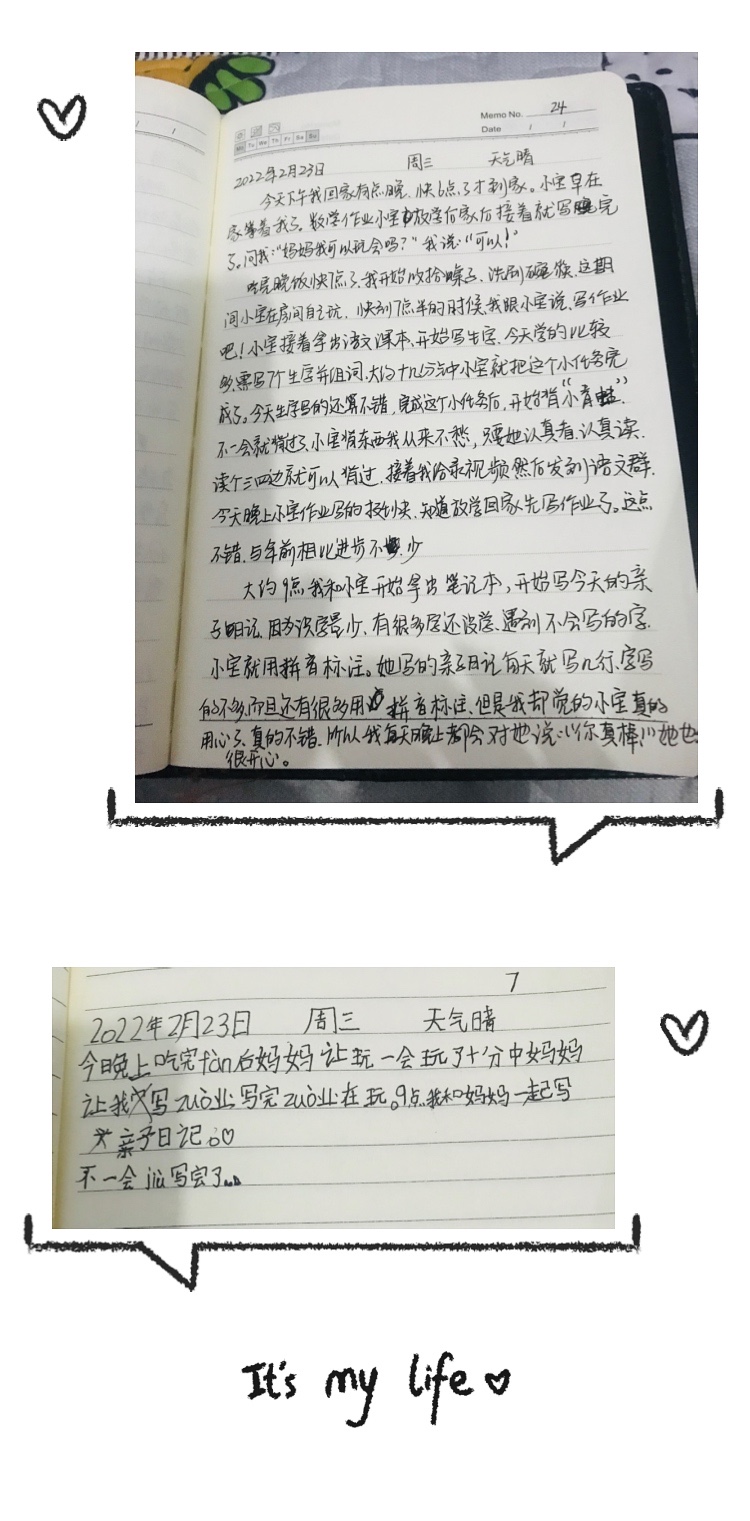 Memo No. 24
Mo Tu We Th Fr Sa Su
Date / /
2022年2月23日 周三 天气晴
今天下午我回家有点晚,快6点了才到家。小宝早在
家等着我了。数学作业小宝放学后家后接着就写完
了。问我:“妈妈我可以玩会吗?”我说:“可以!”
吃完晚饭快7点了,我开始收拾桌子、洗刷碗筷,这期
间小宝在房间自己玩,快到7点半的时候,我跟小宝说,写作业
吧!小宝接着拿出语文课本,开始写生字,今天学的比较
多,需写7个生字并组词,大约十几分钟小宝就把这个小任务完
成了。今天生字写的还算不错,完成这个小任务后,开始背“小青蛙”.
不一会就背过了,小宝背东西我从来不愁,只要她认真看,认真读.
读个三四边就可以背过,接着我给录视频然后发到语文群.
今天晚上小宝作业写的挺快,知道放学回家先写作业了。这点
不错,与年前相比进步不少
大约9点,我和小宝开始拿出笔记本,开始写今天的亲
子日记,因为识字量少,有很多字还没学,遇到不会写的字,
小宝就用拼音标注。她写的亲子日记每天就写几行,字写
的不多,而且还有很多用拼音标注,但是我却觉的小宝真的
用心了,真的不错,所以我每天晚上都会对她说:“你真棒!”她也
很开心。
7
2022年2月23日 周三 天气晴
今晚上吃完fàn后妈妈让玩一会玩了十分中妈妈
让我写zuò业写完zuò业在玩。9点我和妈妈一起写
亲子日记。♡
不一会jiù写完了
It's my life ♡